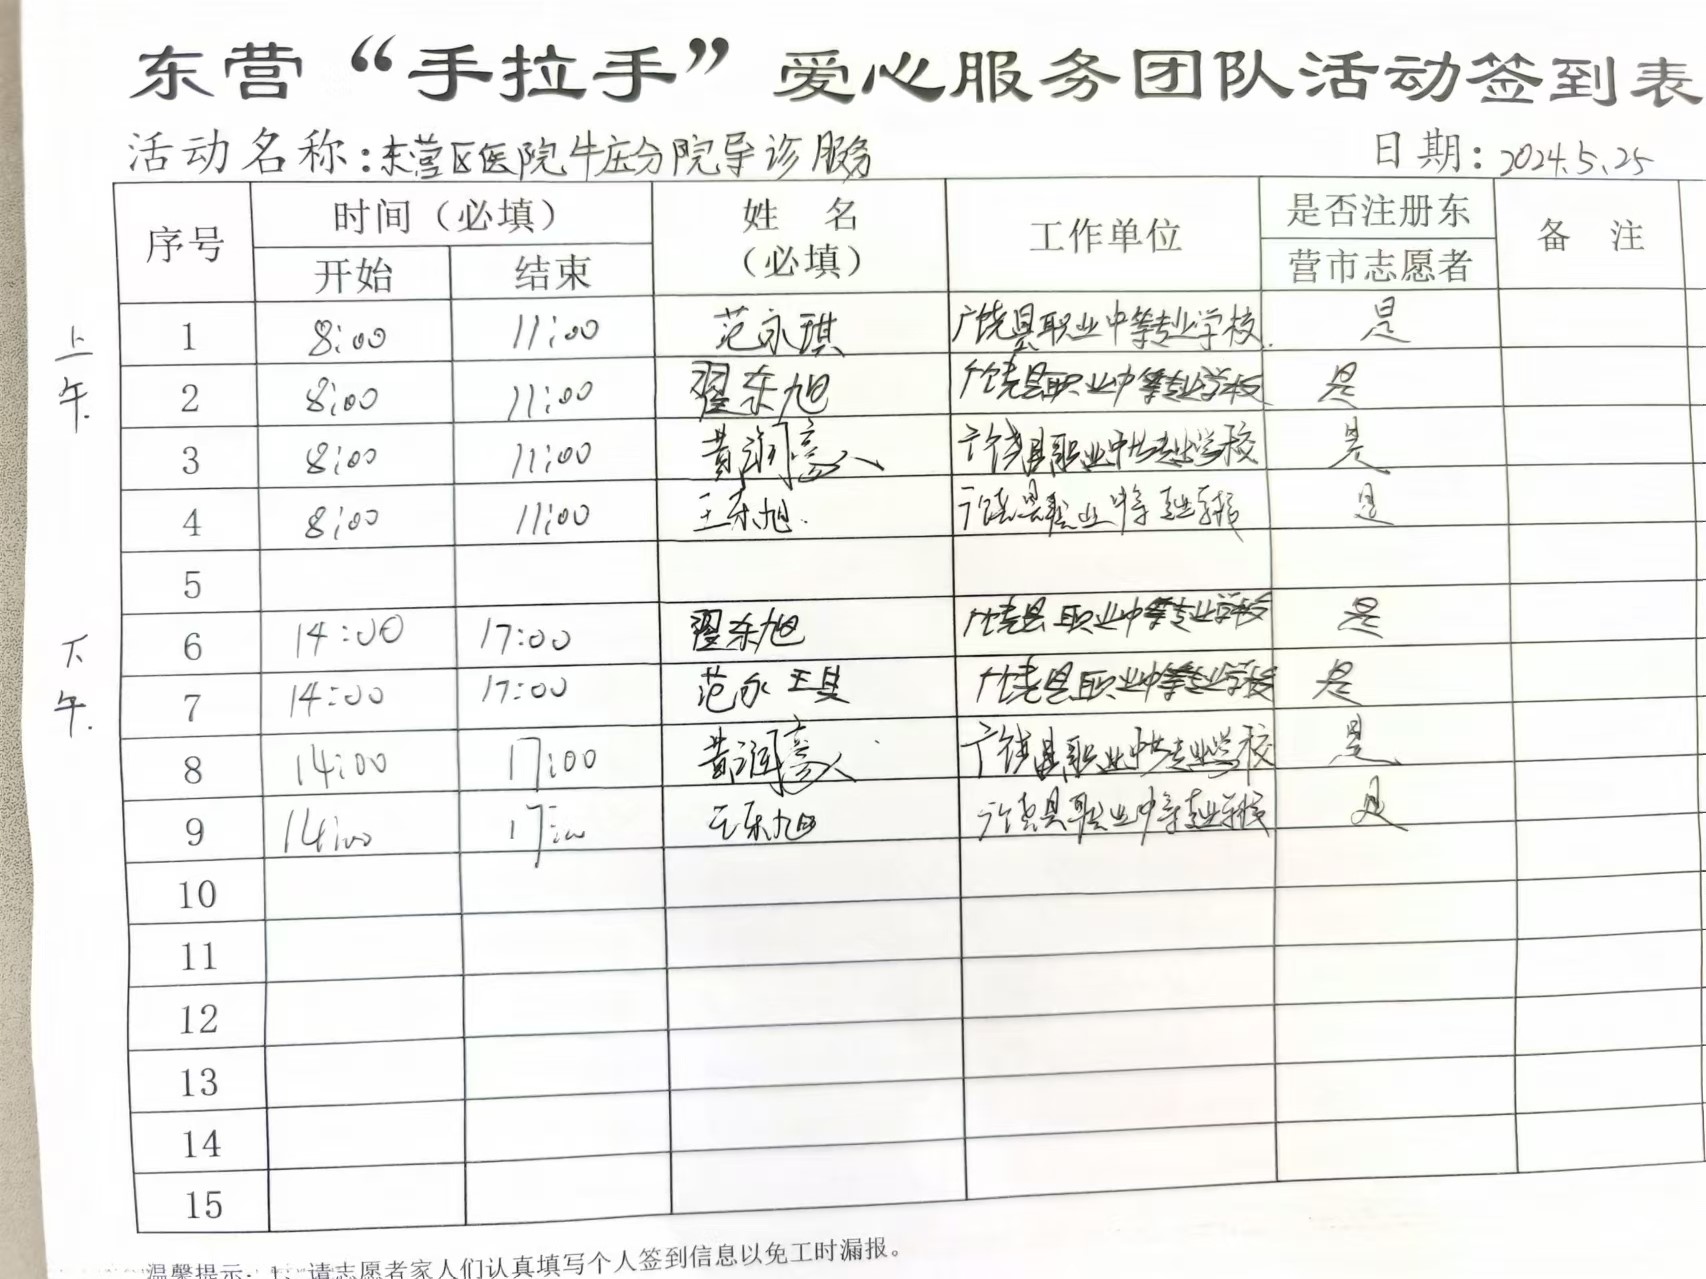 东营“手拉手”爱心服务团队活动签到表
活动名称:东营区医院牛庄分院导诊服务 日期:2024.5.25
序号 时间（必填） 姓名（必填） 工作单位 是否注册东营市志愿者 备注
开始 结束
上午
1 8:00 11:00 范永琪 广饶县职业中等专业学校 是
2 8:00 11:00 翟东旭 广饶县职业中等专业学校 是
3 8:00 11:00 黄润 广饶县职业中专业学校 是
4 8:00 11:00 王东旭 广饶县职业中等专业学校 是
5
下午
6 14:00 17:00 翟东旭 广饶县职业中等专业学校 是
7 14:00 17:00 范永琪 广饶县职业中等专业学校 是
8 14:00 17:00 黄润 广饶县职业中专业学校 是
9 14:00 17:00 王东旭 广饶县职业中等专业学校 是
10
11
12
13
14
15
温馨提示：1、请志愿者家人们认真填写个人签到信息以免工时漏报。